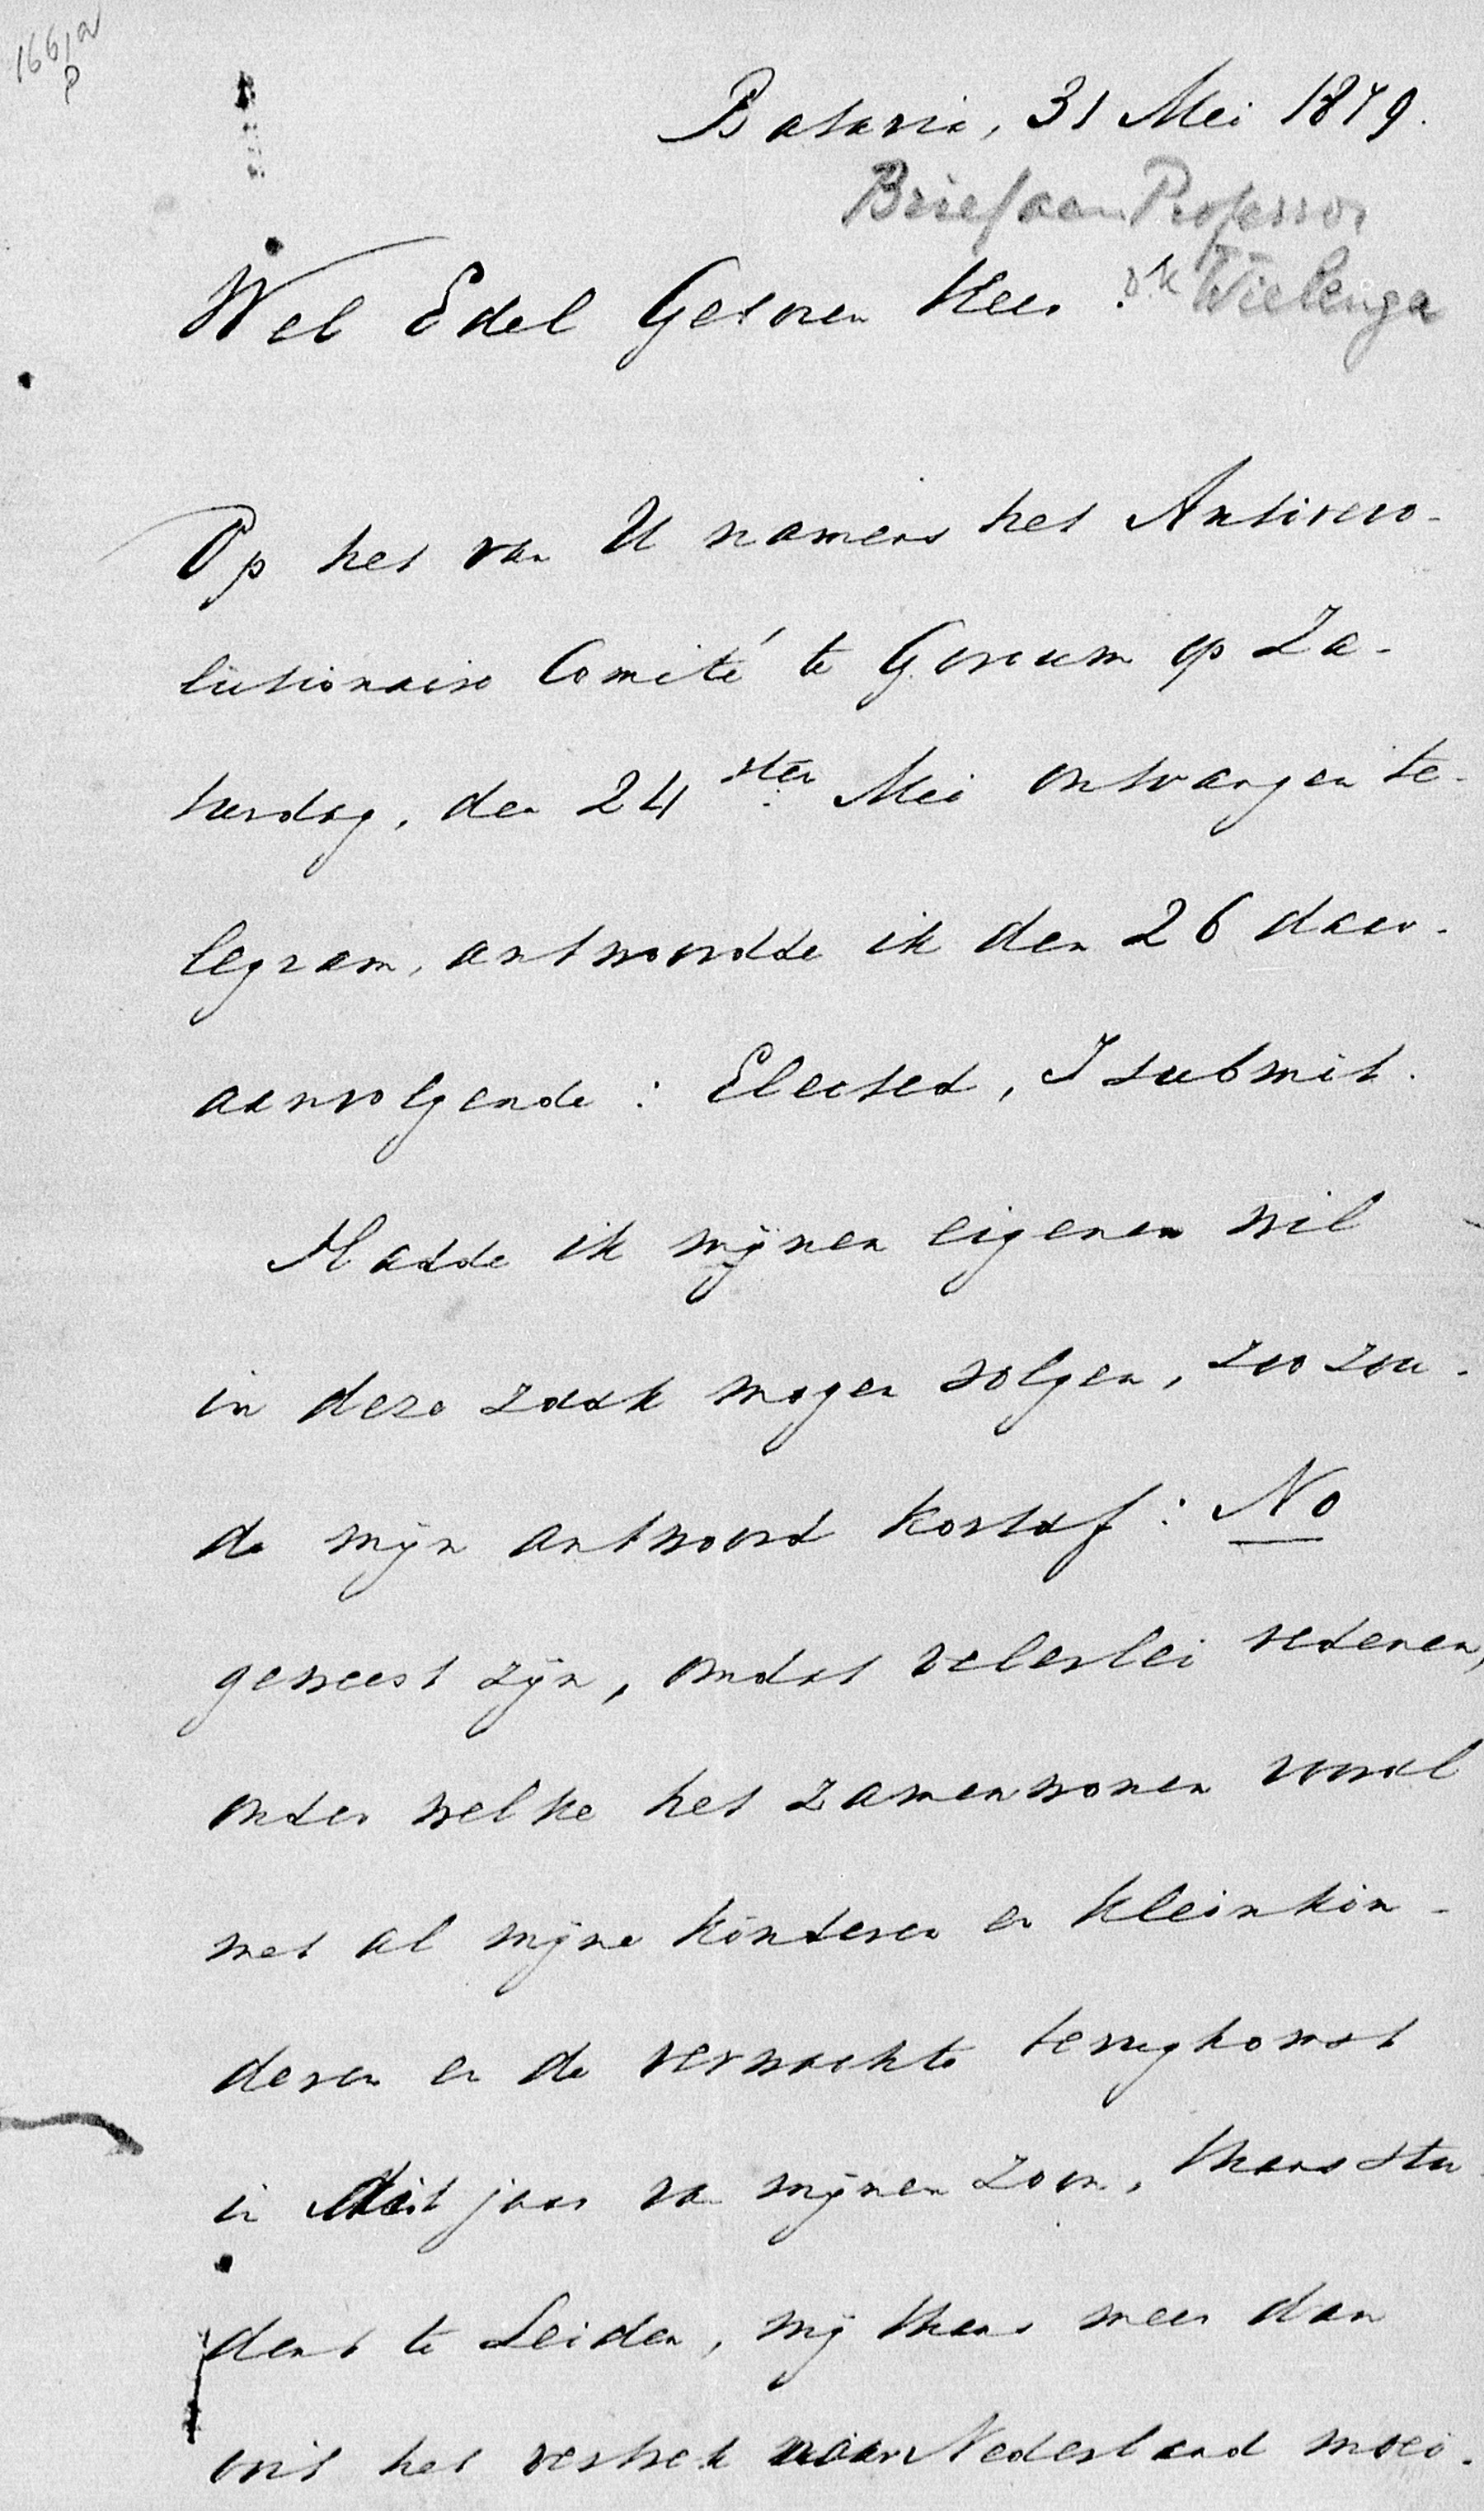 Batavia, 31 Mei 1879.
Brief aan Professor
Wielenga
Wel Edel Geboren Heer!
Op het van U namens het Antirevo-
lutionaire Comité te Gorcum op Za-
turdag, den 24sten Mei ontvangen te-
legram, antwoordde ik den 26 daar-
aanvolgende: Elected, I submit.
Hadde ik mijnen eigenen wil
in deze zaak mogen volgen, zoo zou-
de mijn antwoord kortaf: No
geweest zijn, omdat velerlei redenen,
onder welke het zamenwonen vooral
met al mijne kinderen en kleinkin-
deren en de verwachte terugkomst
in dit jaar van mijnen zoon, thans stu
dent te Leiden, mij thans meer dan
ooit het vertrek naar Nederland moei-